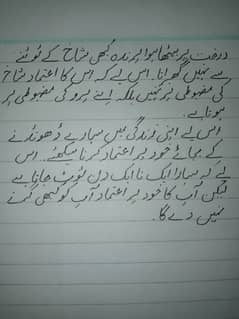 درخت پر بیٹھا ہوا پرندہ کبھی شاخ کے ٹوٹنے
سے نہیں گھبراتا۔ اس لیے کہ اس کا اعتماد شاخ
کی مضبوطی پر نہیں بلکہ اپنے پروں کی مضبوطی پر
ہوتا ہے۔
اس لیے اپنی زندگی میں سہارے ڈھونڈنے
کے بجائے خود پر اعتماد کرنا سیکھئے۔ اس
لیے کہ سہارا ایک نا ایک دن ٹوٹ جاتا ہے
لیکن آپ کا خود پر اعتماد آپ کو کبھی گرنے
نہیں دے گا۔